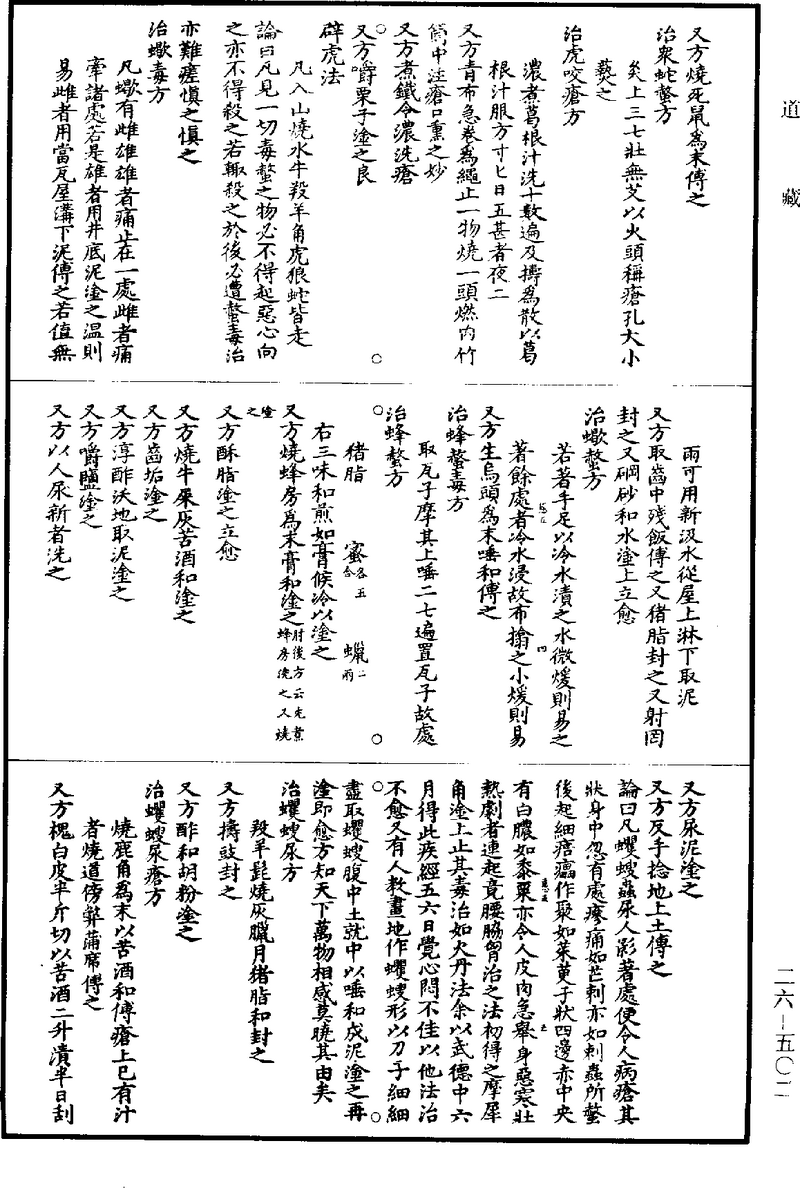 道藏
又方燒死鼠為末傅之
治衆蛇螫方
炙上三七壯無艾以火頭稱瘡孔大小
爇之
治虎咬瘡方
濃煮葛根汁洗十數遍及擣為散以葛
根汁服方寸匕日五甚者夜二
又方青布急卷為繩止一物燒一頭燃内竹
筒中注瘡口熏之妙
又方煮鐵令濃洗瘡
又方嚼栗子塗之良
辟虎法
凡入山燒水牛羖羊角虎狼蛇皆走
論曰凡見一切毒螫之物必不得起惡心向
之亦不得殺之若輒殺之於後必遭螫毒治
亦難瘥慎之慎之
治蠍毒方
凡蠍有雌雄雄者痛止在一處雌者痛
牽諸處若是雄者用井底泥塗之温則
易雌者用當瓦屋溝下泥傅之若值無
雨可用新汲水從屋上淋下取泥
又方取齒中殘飯傅之又猪脂封之又射罔
封之又硇砂和水塗上立愈
治蠍螫方
若著手足以冷水漬之水微煖則易之
著餘處者冷水浸故布搨之小煖則易
又方生烏頭為末唾和傅之
治蜂螫毒方
取瓦子摩其上唾二七遍置瓦子故處
治蜂螫方
猪脂 蜜各五合 蠟二兩
右三味和煎如膏候冷以塗之
又方燒蜂房為末膏和塗之肘後方云先煮蜂房洗之又燒塗之
又方酥脂塗之立愈
又方燒牛屎灰苦酒和塗之
又方齒垢塗之
又方淳酢沃地取泥塗之
又方嚼鹽塗之
又方以人尿新者洗之
又方尿泥塗之
又方反手捻地上土傅之
論曰凡蠼螋蟲尿人影著處便令人病瘡其
狀身中忽有處㾓痛如芒刺亦如刺蟲所螫
後起細㾦𤺋作聚如茱萸子狀四邊赤中央
有白膿如黍粟亦令人皮肉急舉身惡寒壯
熱劇者連起竟腰脇胷治之法初得之摩犀
角塗上止其毒治如火丹法余以武德中六
月得此疾經五六日覺心悶不佳以他法治
不愈又有人教畫地作蠼螋形以刀子細細
盡取蠼螋腹中土就中以唾和成泥塗之再
塗即愈方知天下萬物相感莫曉其由矣
治蠼螋尿方
羖羊髭燒灰臘月猪脂和封之
又方擣豉封之
又方酢和胡粉塗之
治蠼螋尿瘡方
燒鹿角為末以苦酒和傅瘡上已有汁
者燒道傍弊蒲席傅之
又方槐白皮半斤切以苦酒二升漬半日刮
二六-五〇二